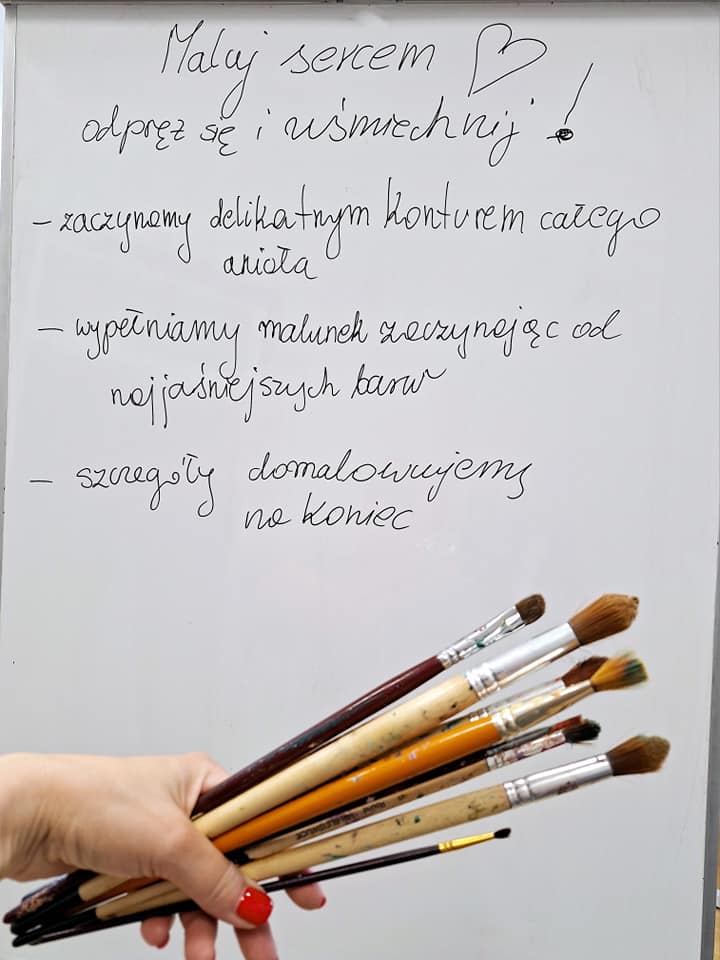 Maluj sercem ♡
odpręż się i uśmiechnij !
- zaczynamy delikatnym konturem całego
anioła
- wypełniamy malunek zaczynając od
najjaśniejszych barw
- szczegóły domalowujemy
na koniec